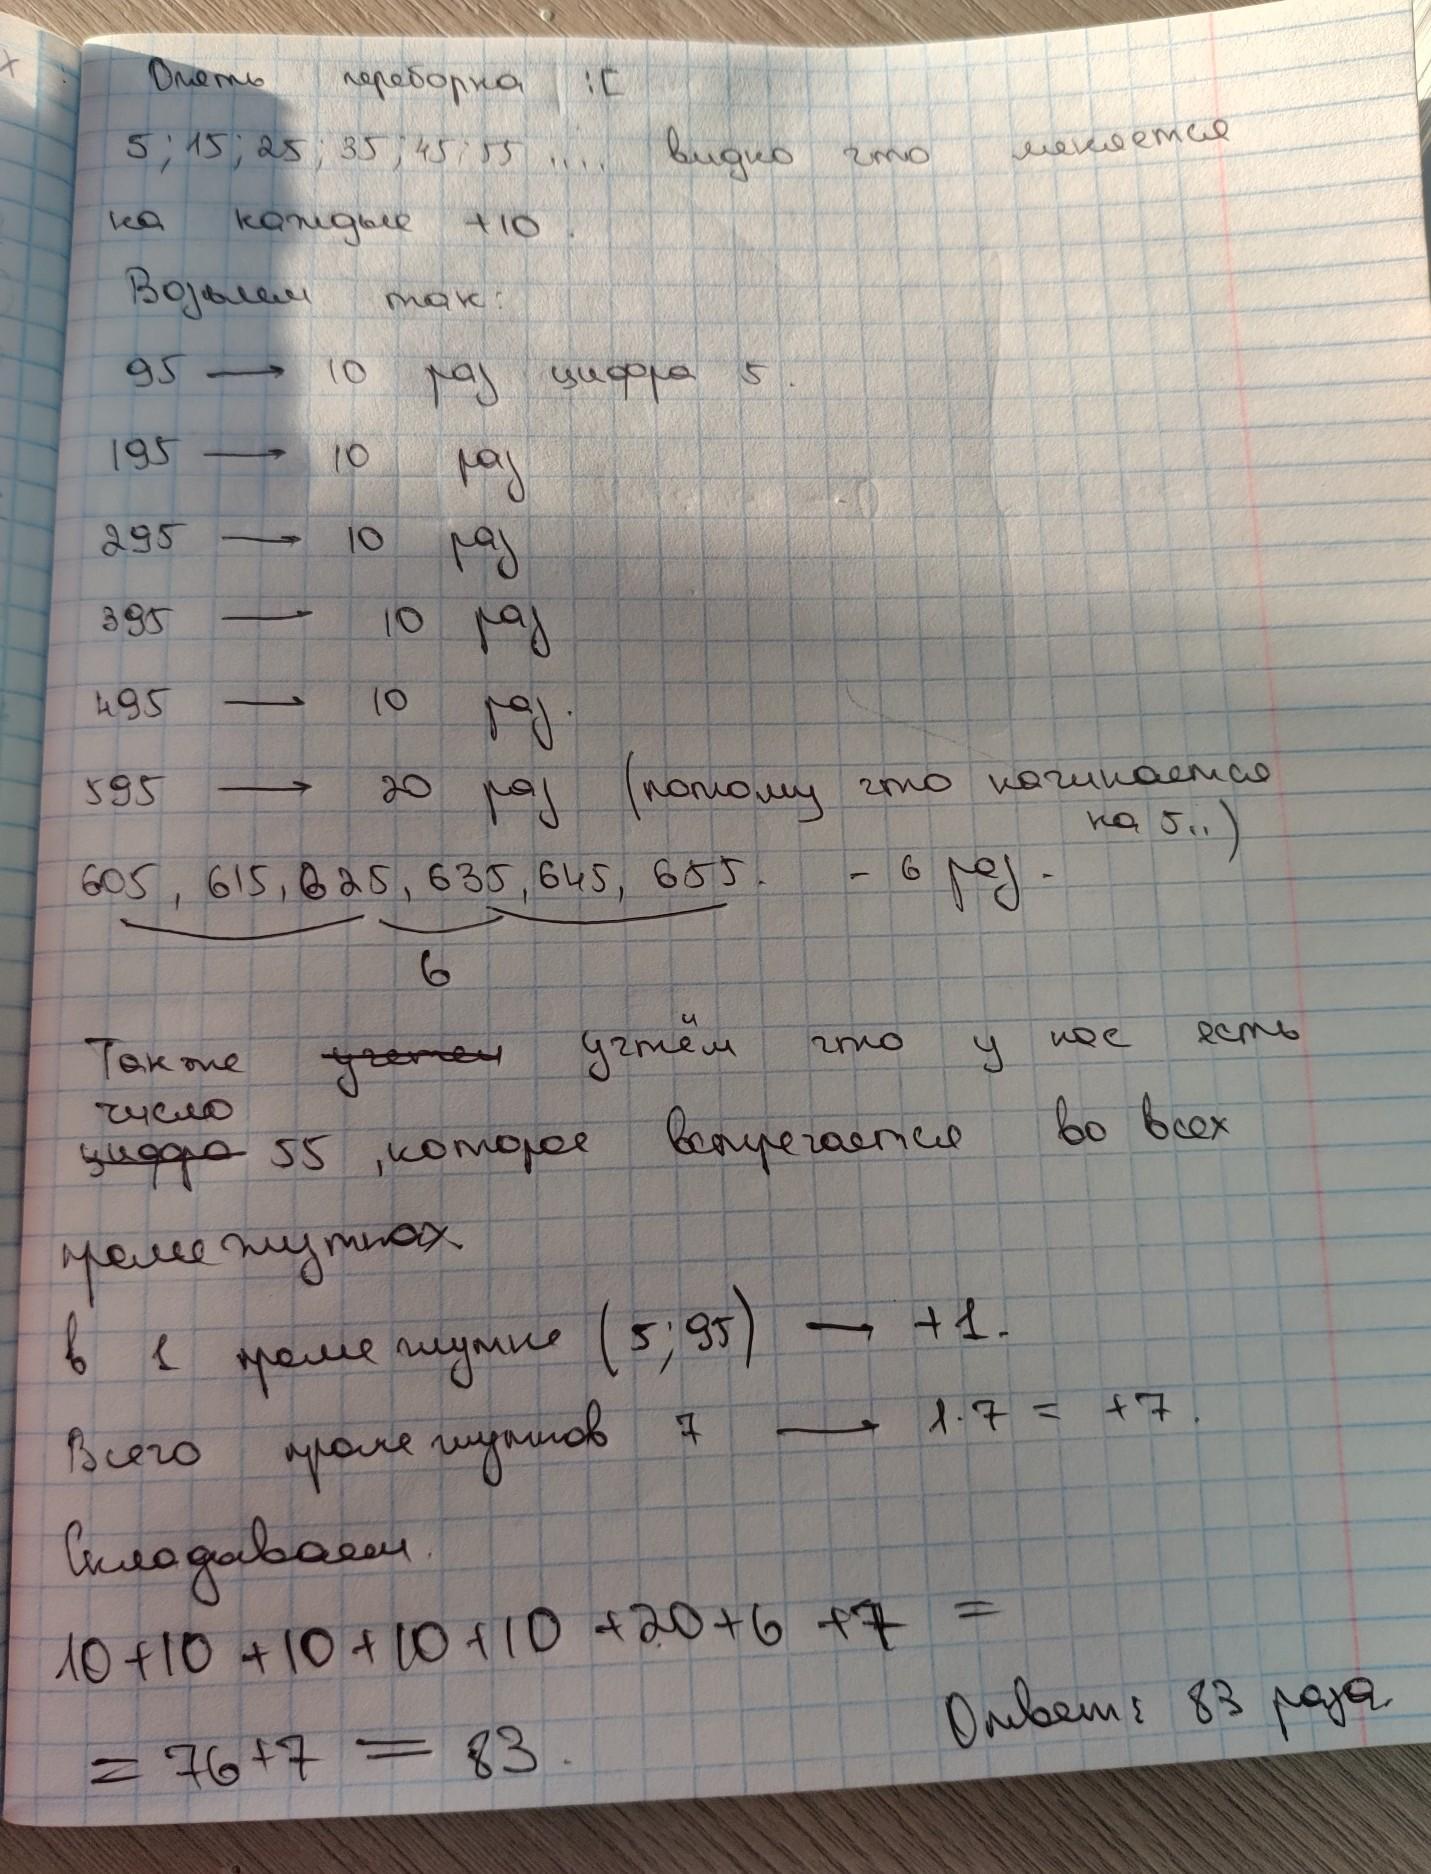 Опять переборка :[
5; 15; 25; 35; 45; 55 .... видно что меняется
на каждые +10.
Возьмем так:
95 → 10 раз цифра 5.
195 → 10 раз
295 → 10 раз
395 → 10 раз
495 → 10 раз.
595 → 20 раз (потому что начинается
на 5..)
605, 615, 625, 635, 645, 655. - 6 раз.
6
Также учтём что у нас есть
число
цифра 55, которое встречается во всех
промежутках
в 1 промежутке (5; 95) → +1.
Всего промежутков 7 → 1·7 = +7.
Складываем.
10+10+10+10+10+20+6+7 =
= 76+7 = 83.
Ответ: 83 раза.